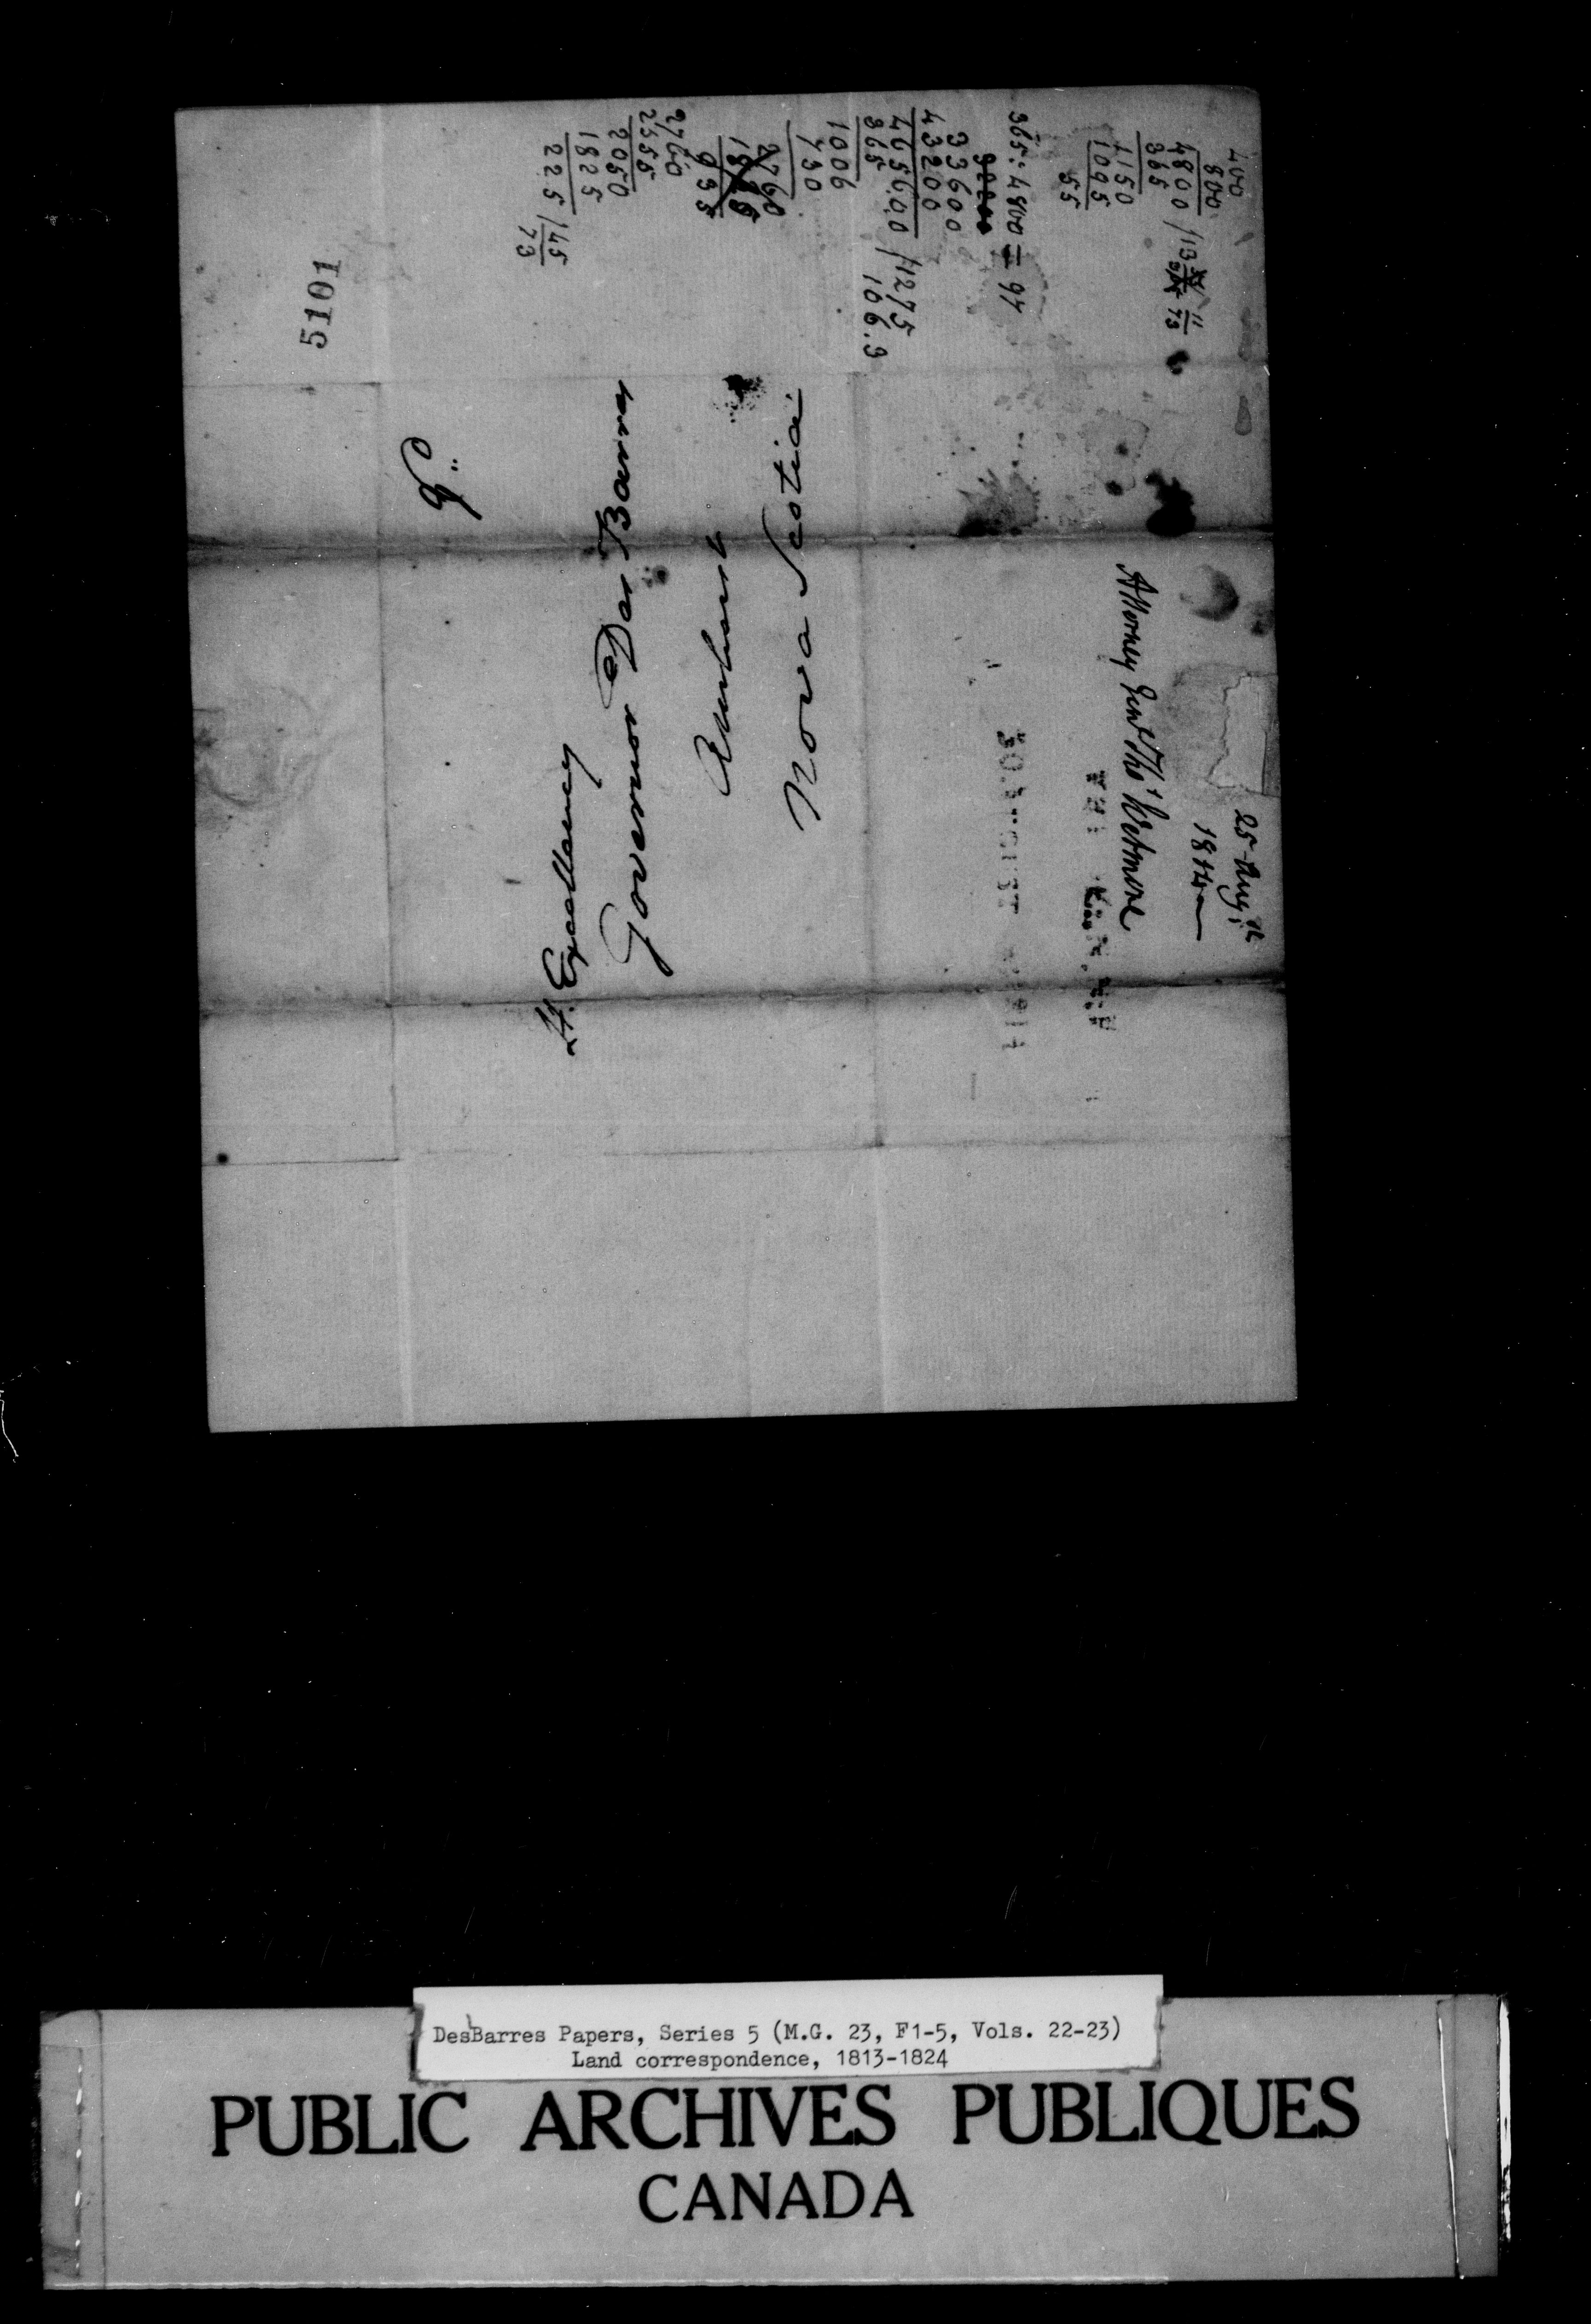 400
800
4800 / 13 11/73
365
1150
1095
55
365 : 4800 = 97
33600
43200
465600 / 1275
365
106.9
1006
730
2760
1825
935
2760
2555
2050
1825
225 / 45
73
5101
25 Augt.
1814
Attorney Genl Thos Wetmore
H. Excellency
Governor Des Barres
Amherst
Nova Scotia
DesBarres Papers, Series 5 (M.G. 23, F1-5, Vols. 22-23)
Land correspondence, 1813-1824
PUBLIC ARCHIVES PUBLIQUES
CANADA